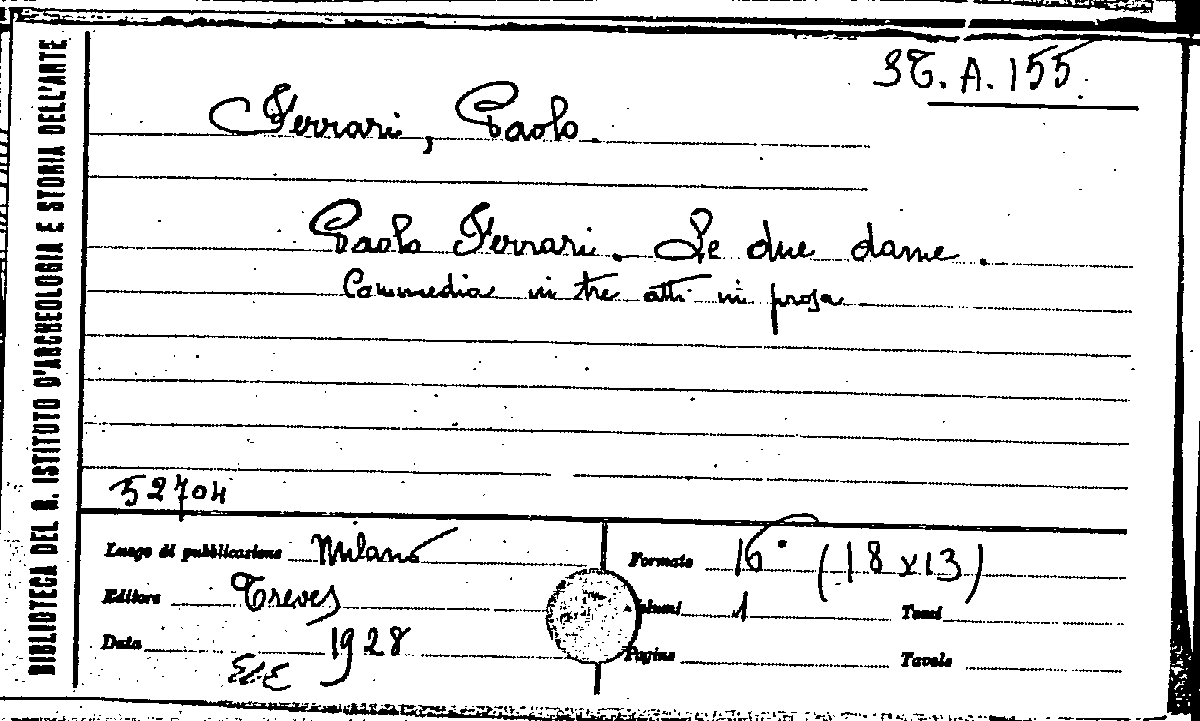 BIBLIOTECA DEL R. ISTITUTO D'ARCHEOLOGIA E STORIA DELL'ARTE
ST. A. 155.
Ferrari, Paolo.
Paolo Ferrari. Le due dame.
Commedia in tre atti in prosa
52704
Luogo di pubblicazione Milano
Formato 16° (18x13)
Editore Treves
Volumi 1 Tomi
Data 1928
Pagine Tavole